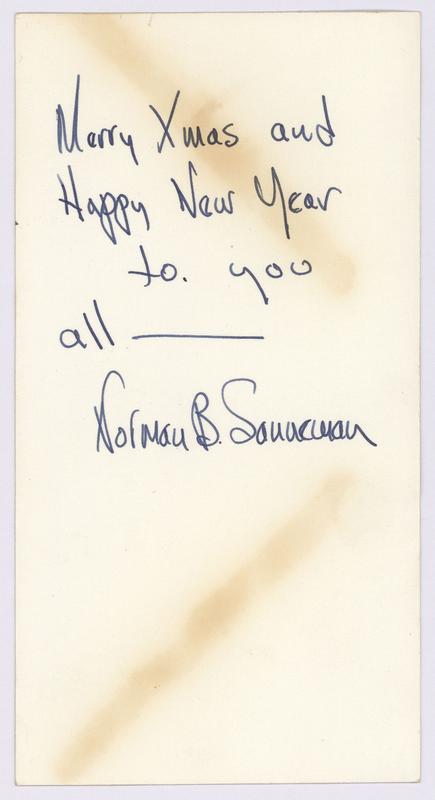 Merry Xmas and
Happy New Year
to. you
all —
Norman B. Sonneman